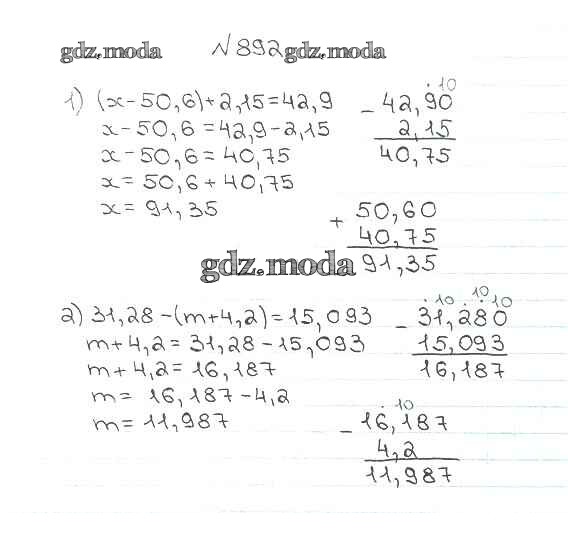 gdz.moda №892 gdz.moda
1) (x-50,6)+2,15=42,9
x-50,6=42,9-2,15
x-50,6=40,75
x=50,6+40,75
x=91,35
· 10
- 42,90
2,15
40,75
+ 50,60
40,75
91,35
gdz.moda
2) 31,28-(m+4,2)=15,093
m+4,2=31,28-15,093
m+4,2=16,187
m= 16,187-4,2
m=11,987
· 10 · 10 · 10
- 31,280
15,093
16,187
· 10
- 16,187
4,2
11,987